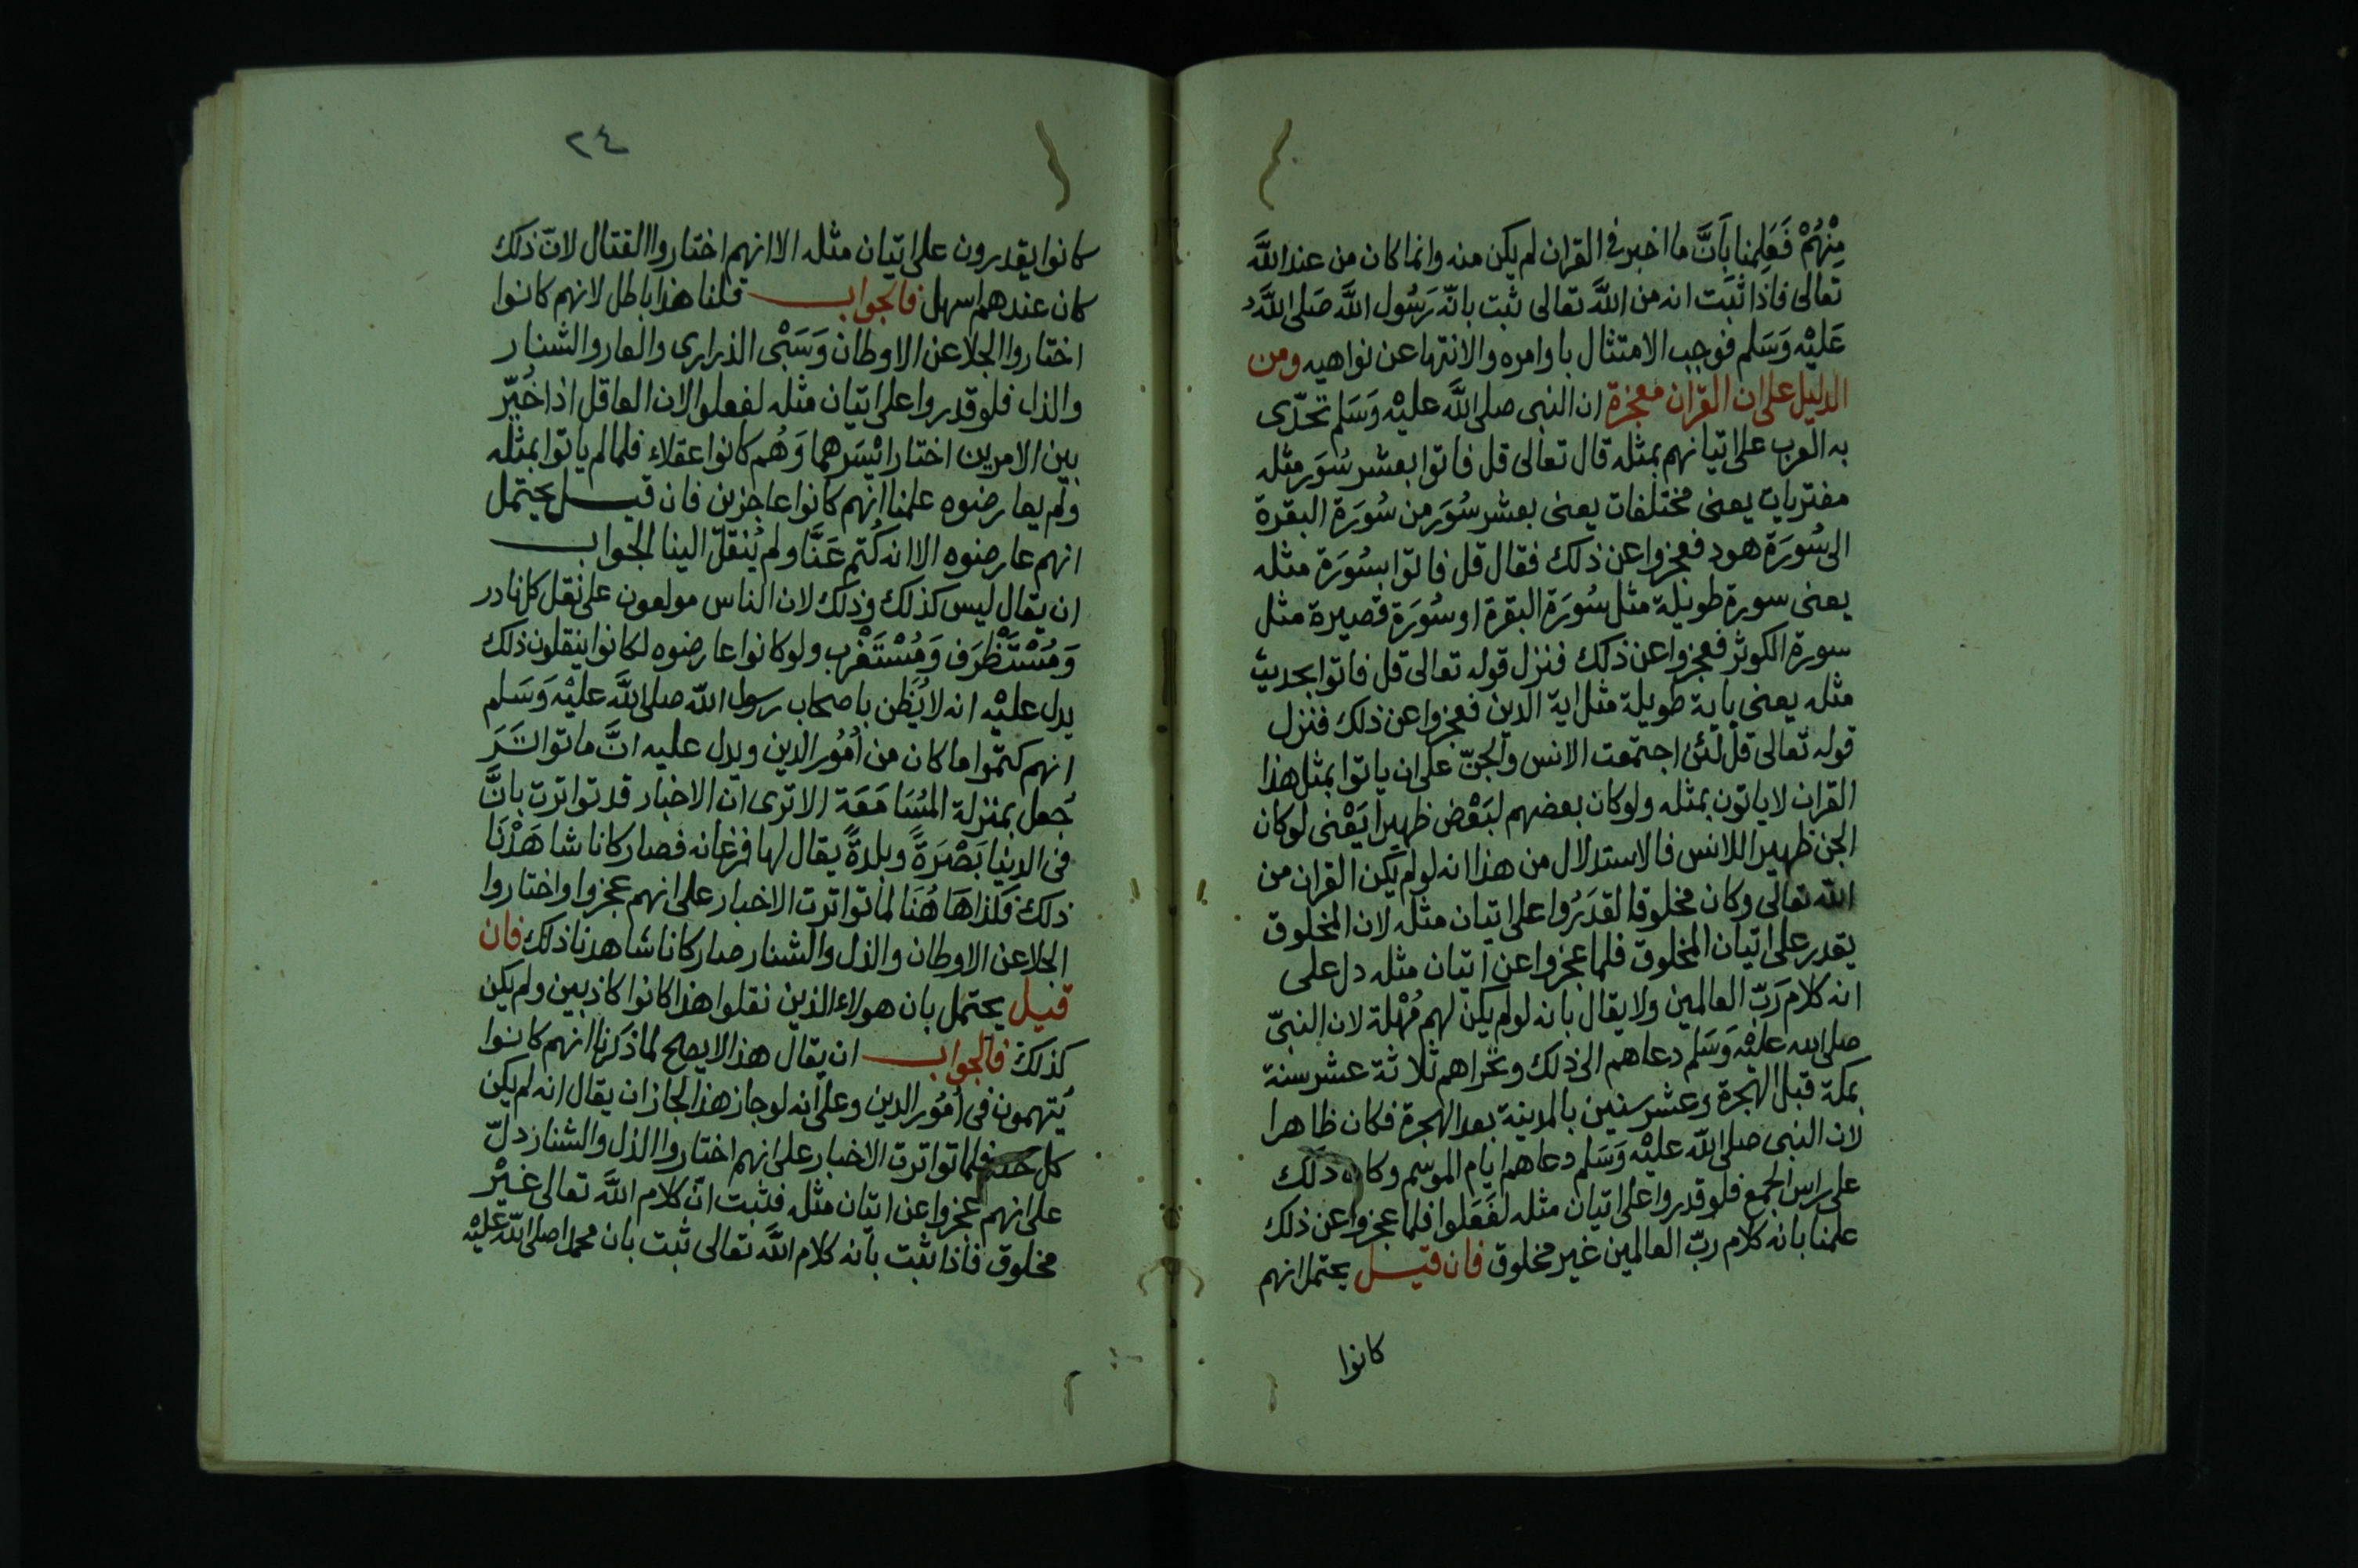 مِنْهُمْ فَعَلِمنا بَأَنَّ ما اخبر فى القران لم يكن منه وانما كان من عند اللَّه
تعالى فاذا ثبَت انه من اللَّه تعالى ثبت بانّه رَسُول اللَّه صَلى اللَّهُ
عَليْه وَسَلم فوجب الامتثال باوامره والانتها عن نواهيه ومن
الدليل على ان القران معجزة ان النبى صلى اللَّه عليْه وَسَلم تحدّى
به العرب على اتيانهم بمثله قال تعالى قل فاتوا بعشر سُوَر مثله
مفتريات يعنى مختلفات يعنى بعشر سُوَر من سُوَرَة البقرة
الى سُورَة هود فعجزوا عن ذلك فقال قل فاتوا بسُورَة مثله
يعنى سورة طويلة مثل سُورَة البقرة او سُورَة قصيرة مثل
سورة الكوثر فعجزوا عن ذلك فنزل قوله تعالى قل فاتوا بحديث
مثله يعنى باية طويلة مثل اية الدين فعجزوا عن ذلك فنزل
قوله تعالى قل لئن اجتمعت الانس والجنّ على ان ياتوا بمثل هذا
القران لا ياتون بمثله ولو كان بعضهم لبَعْض ظهيرا يَعْنى لو كان
الجن ظهيرا للانس فالاستدلال من هذا انه لو لم يكن القران من
اللّه تعالى وكان مخلوقا لقدَرُوا على اتيان مثله لان المخلوق
يقدر على اتيان المخلوق فلما عجزوا عن اتيان مثله دل على
انه كلام رَبّ العالمين ولا يقال بانه لو لم يكن لهم مُهْلة لان النبىّ
صلى الله عليْه وَسَلم دعاهم الى ذلك وتحراهم ثلاثة عشر سنة
بمكة قبل الهجرة وعشر سنين بالمدينة بعد الهجرة فكان ظاهرا
لان النبى صلى اللّه عليْه وَسَلم دعاهم ايام الموسم وكان ذلك
على راس الجمع فلو قدروا على اتيان مثله لفَعَلوا فلما عجزوا عن ذلك
علمنا بانه كلام ربّ العالمين غير مخلوق فان قيل يحتمل انهم
كانوا
٢٤
كانوا يقدرون على اتيان مثله الا انهم اختاروا القتال لانّ ذلك
كان عندهم اسهل فالجواب قلنا هذا باطل لانهم كانوا
اختاروا الجلا عن الاوطان وَسَبْى الذرارى والعار والشنار
والذل فلو قدروا على اتيان مثله لفعلوا لان العاقل اذا خُيّر
بين الامرين اختار ائيْسَرهما وَهُم كانوا عقلاء فلما لم ياتوا بمثله
ولم يعارضوه علمنا انهم كانوا عاجزين فان قيل يحتمل
انهم عارضوه الا انه كُتم عَنَّا ولم يُنقل الينا الجواب
ان يقال ليس كذلك وذلك لان الناس مولعون على نقل كل نادر
وَمُسْتَظْرَف وَمُسْتَغْرب ولو كانوا عارضوه لكانوا ينقلون ذلك
يدل عليْه انه لا يُظن باصحاب رسول اللّه صلى اللَّه عليْه وَسَلم
انهم كتموا ما كان من اُمُور الدين ويدل عليه انَّ ما تواتَرَ
جُعل بمنزلة المسُامَعَة الا ترى ان الاخبار قد تواترت بانَّ
فى الدنيا بَصْرَةً وبلدةً يقال لها فرغانه فصار كانا شاهَدْنَا
ذلك فكذا هَا هُنَا لما تواترت الاخبار على انهم عجزوا واختاروا
الجلا عن الاوطان والذل والشنار صار كانا شاهدنا ذلك فان
قيل يحتمل بان هولاء الذين نقلوا هذا كانوا كاذبين ولم يكن
كذلك فالجواب ان يقال هذا لا يصلح لما ذكرنا انهم كانوا
يُتهمون فى اُمُور الدين وعلى انه لو جاز هذا لجاز ان يقال انه لم يكن
كل فلما تواترت الاخبار على انهم اختاروا الذل والشنار دلّ
على انهم عجزوا عن اتيان مثله فثبت انّ كلام اللَّه تعالى غيْر
مخلوق فاذا ثبت بانه كلام اللَّه تعالى ثبت بان محمدا صلى اللّه عليْه